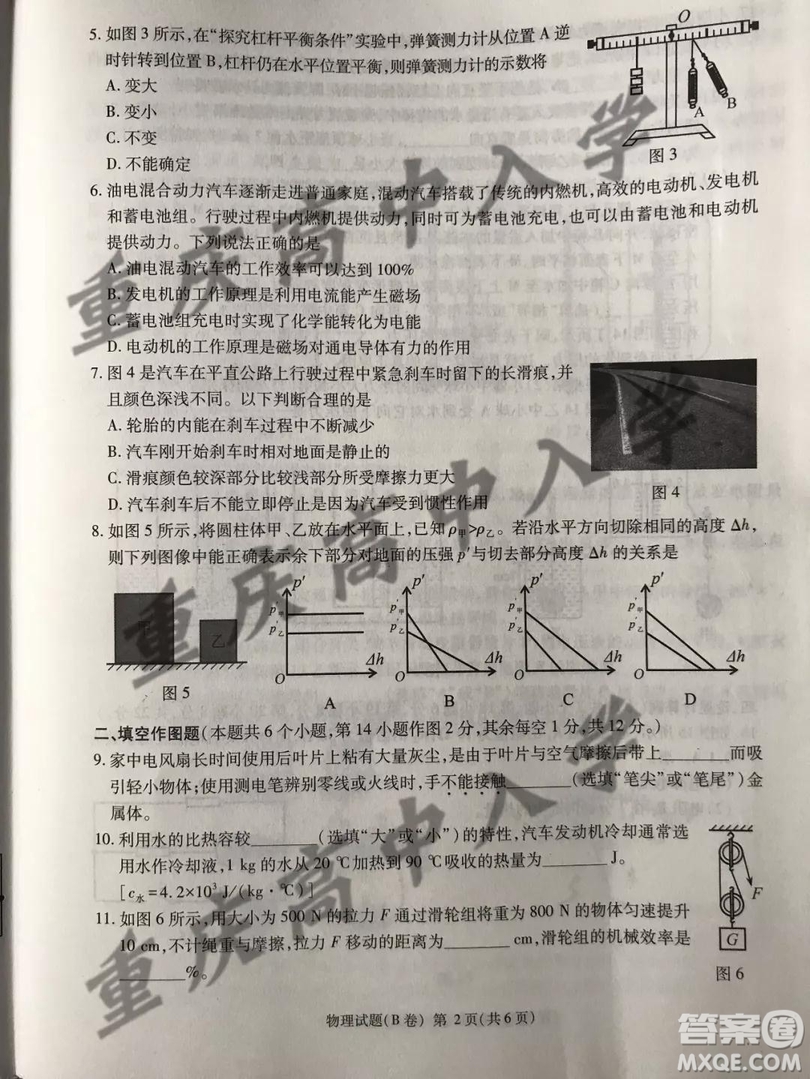 5. 如图3所示,在“探究杠杆平衡条件”实验中,弹簧测力计从位置A逆
时针转到位置B,杠杆仍在水平位置平衡,则弹簧测力计的示数将
A. 变大
B. 变小
C. 不变
D. 不能确定
O
A
B
图3
6. 油电混合动力汽车逐渐走进普通家庭,混动汽车搭载了传统的内燃机,高效的电动机、发电机
和蓄电池组。行驶过程中内燃机提供动力,同时可为蓄电池充电,也可以由蓄电池和电动机
提供动力。下列说法正确的是
A. 油电混动汽车的工作效率可以达到100%
B. 发电机的工作原理是利用电流能产生磁场
C. 蓄电池组充电时实现了化学能转化为电能
D. 电动机的工作原理是磁场对通电导体有力的作用
7. 图4是汽车在平直公路上行驶过程中紧急刹车时留下的长滑痕,并
且颜色深浅不同。以下判断合理的是
A. 轮胎的内能在刹车过程中不断减少
B. 汽车刚开始刹车时相对地面是静止的
C. 滑痕颜色较深部分比较浅部分所受摩擦力更大
D. 汽车刹车后不能立即停止是因为汽车受到惯性作用
图4
8. 如图5所示,将圆柱体甲、乙放在水平面上,已知ρ甲>ρ乙。若沿水平方向切除相同的高度Δh,
则下列图像中能正确表示余下部分对地面的压强p′与切去部分高度Δh的关系是
甲 乙
图5
p′ p′甲 p′乙 O Δh
A
p′ p′甲 p′乙 O Δh
B
p′ p′甲 p′乙 O Δh
C
p′ p′甲 p′乙 O Δh
D
二、填空作图题(本题共6个小题,第14小题作图2分,其余每空1分,共12分。)
9. 家中电风扇长时间使用后叶片上粘有大量灰尘,是由于叶片与空气摩擦后带上______而吸
引轻小物体;使用测电笔辨别零线或火线时,手不能接触______(选填“笔尖”或“笔尾”)金
属体。
10. 利用水的比热容较______(选填“大”或“小”)的特性,汽车发动机冷却通常选
用水作冷却液,1 kg的水从20 ℃加热到90 ℃吸收的热量为______J。
[c水=4.2×10³ J/(kg·℃)]
11. 如图6所示,用大小为500 N的拉力F通过滑轮组将重为800 N的物体匀速提升
10 cm,不计绳重与摩擦,拉力F移动的距离为______cm,滑轮组的机械效率是
______%。
F
G
图6
物理试题(B卷) 第2页(共6页)
重庆高中入学
重庆高中入学
重庆高中入学
答案圈
MXQE.COM